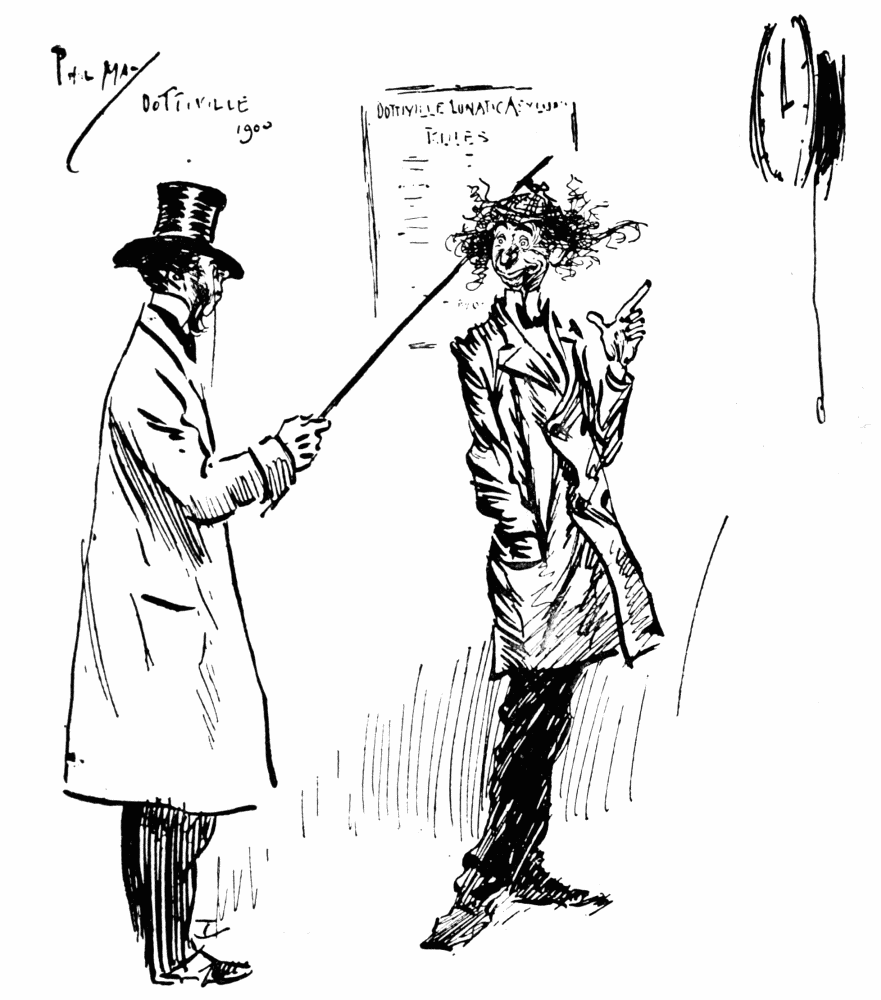 PHIL MAY
DOTTIVILLE
1900
DOTTIVILLE LUNATIC ASYLUM
RULES